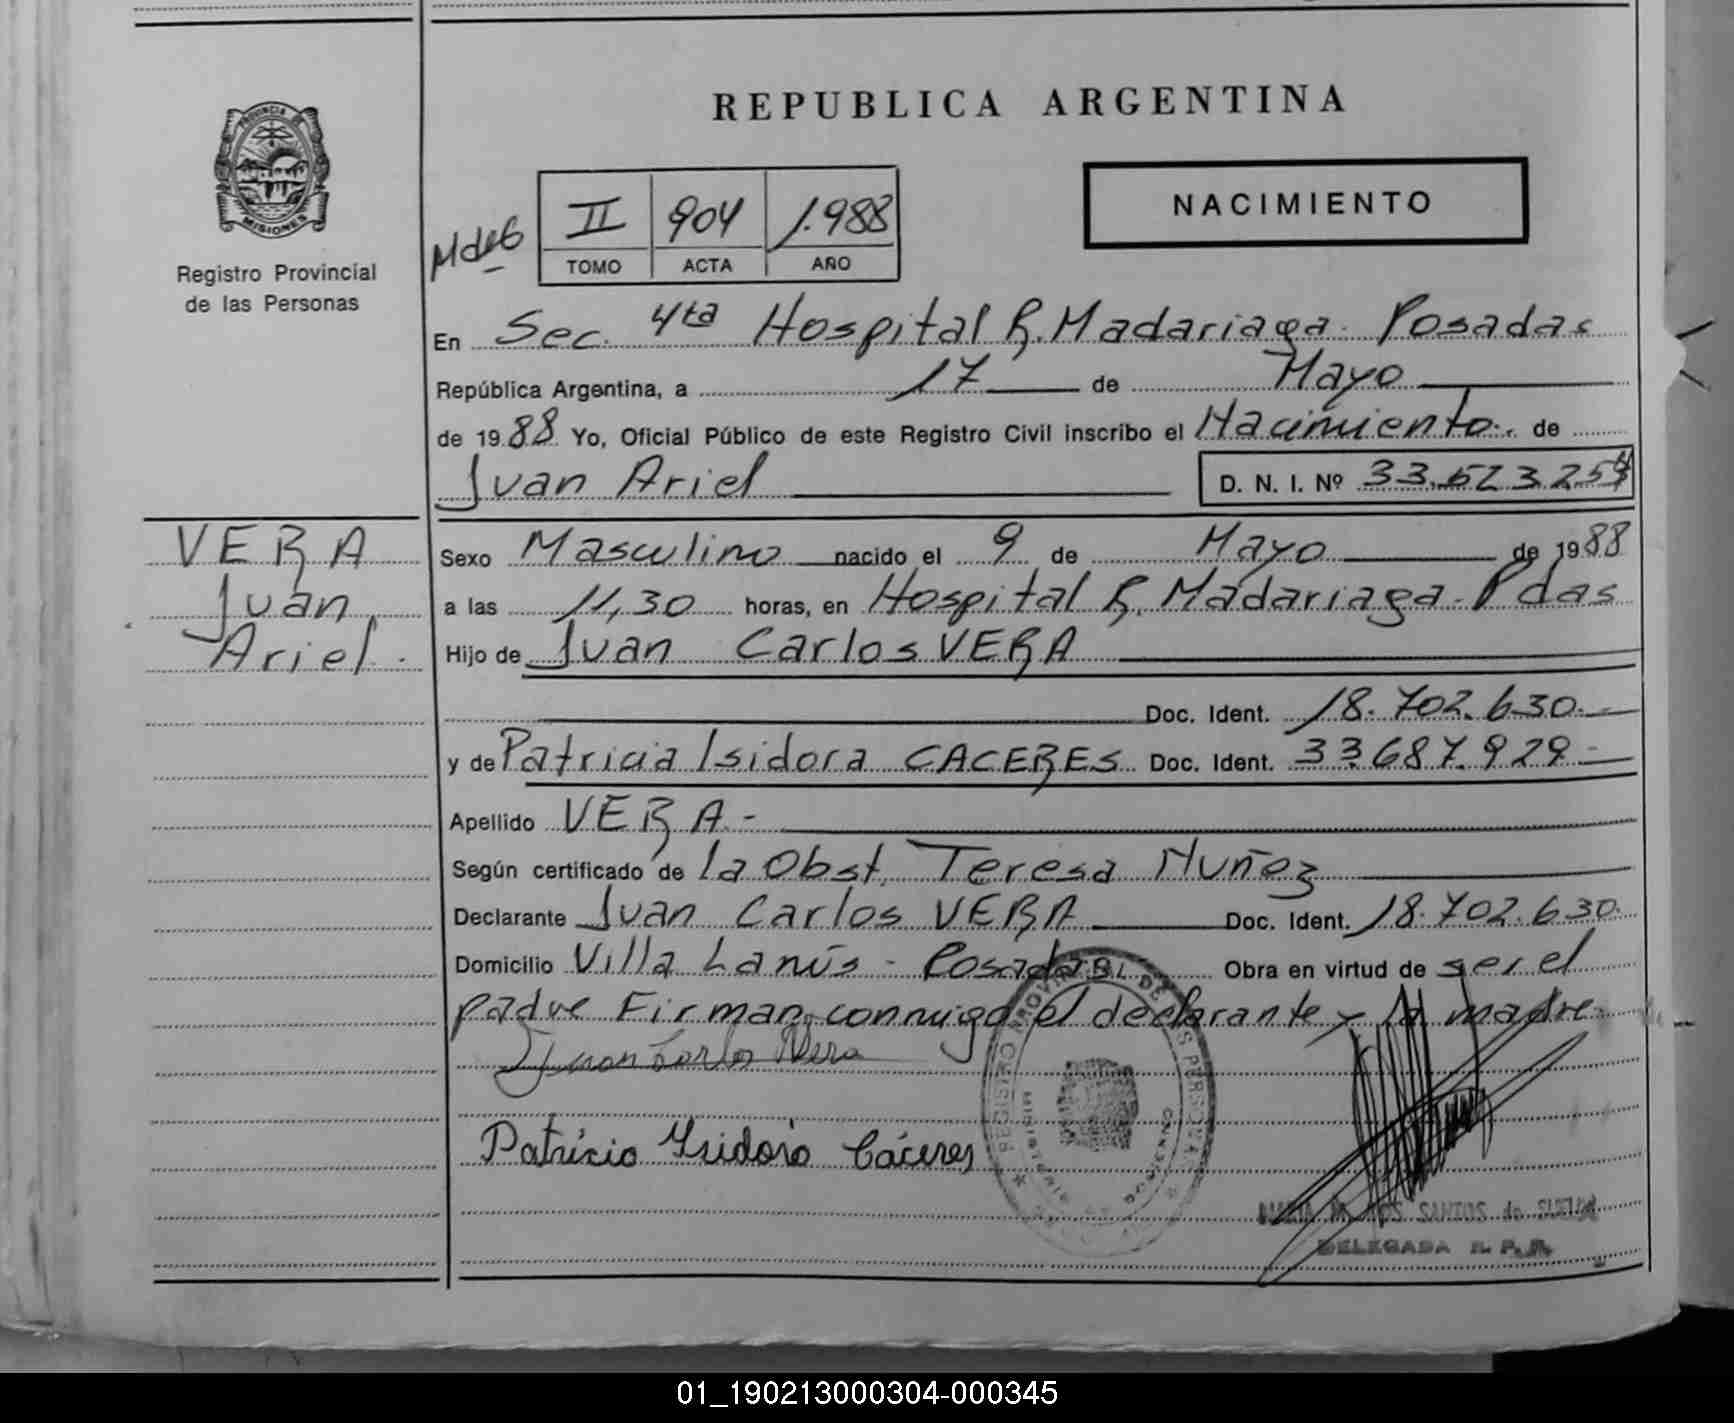 REPUBLICA ARGENTINA
PROVINCIA DE
MISIONES
Registro Provincial
de las Personas
II 904 1.988
TOMO ACTA AÑO
NACIMIENTO
En Sec. 4ta Hospital R. Madariaga. Posadas
República Argentina, a 17 de Mayo
de 1988 Yo, Oficial Público de este Registro Civil inscribo el Nacimiento. de
Juan Ariel D. N. I. Nº
VERA
Juan
Ariel.
Sexo Masculino nacido el 9 de Mayo de 1988
a las 11,30 horas, en Hospital R. Madariaga. Pdas
Hijo de Juan Carlos VERA
Doc. Ident. 18.702.630.-
y de Patricia Isidora CACERES Doc. Ident. 33.687.929.-
Apellido VERA.-
Según certificado de la Obst. Teresa Muñoz
Declarante Juan Carlos VERA Doc. Ident. 18.702.630.
Domicilio Villa Lanús - Posadas. Obra en virtud de ser el
padre Firman conmigo el declarante y la madre.
Juan Carlos Vera
Patricia Isidora Cáceres
REGISTRO PROVINCIAL DE LAS PERSONAS
SANTOS de
DELEGADA R. P. P.
01_190213000304-000345